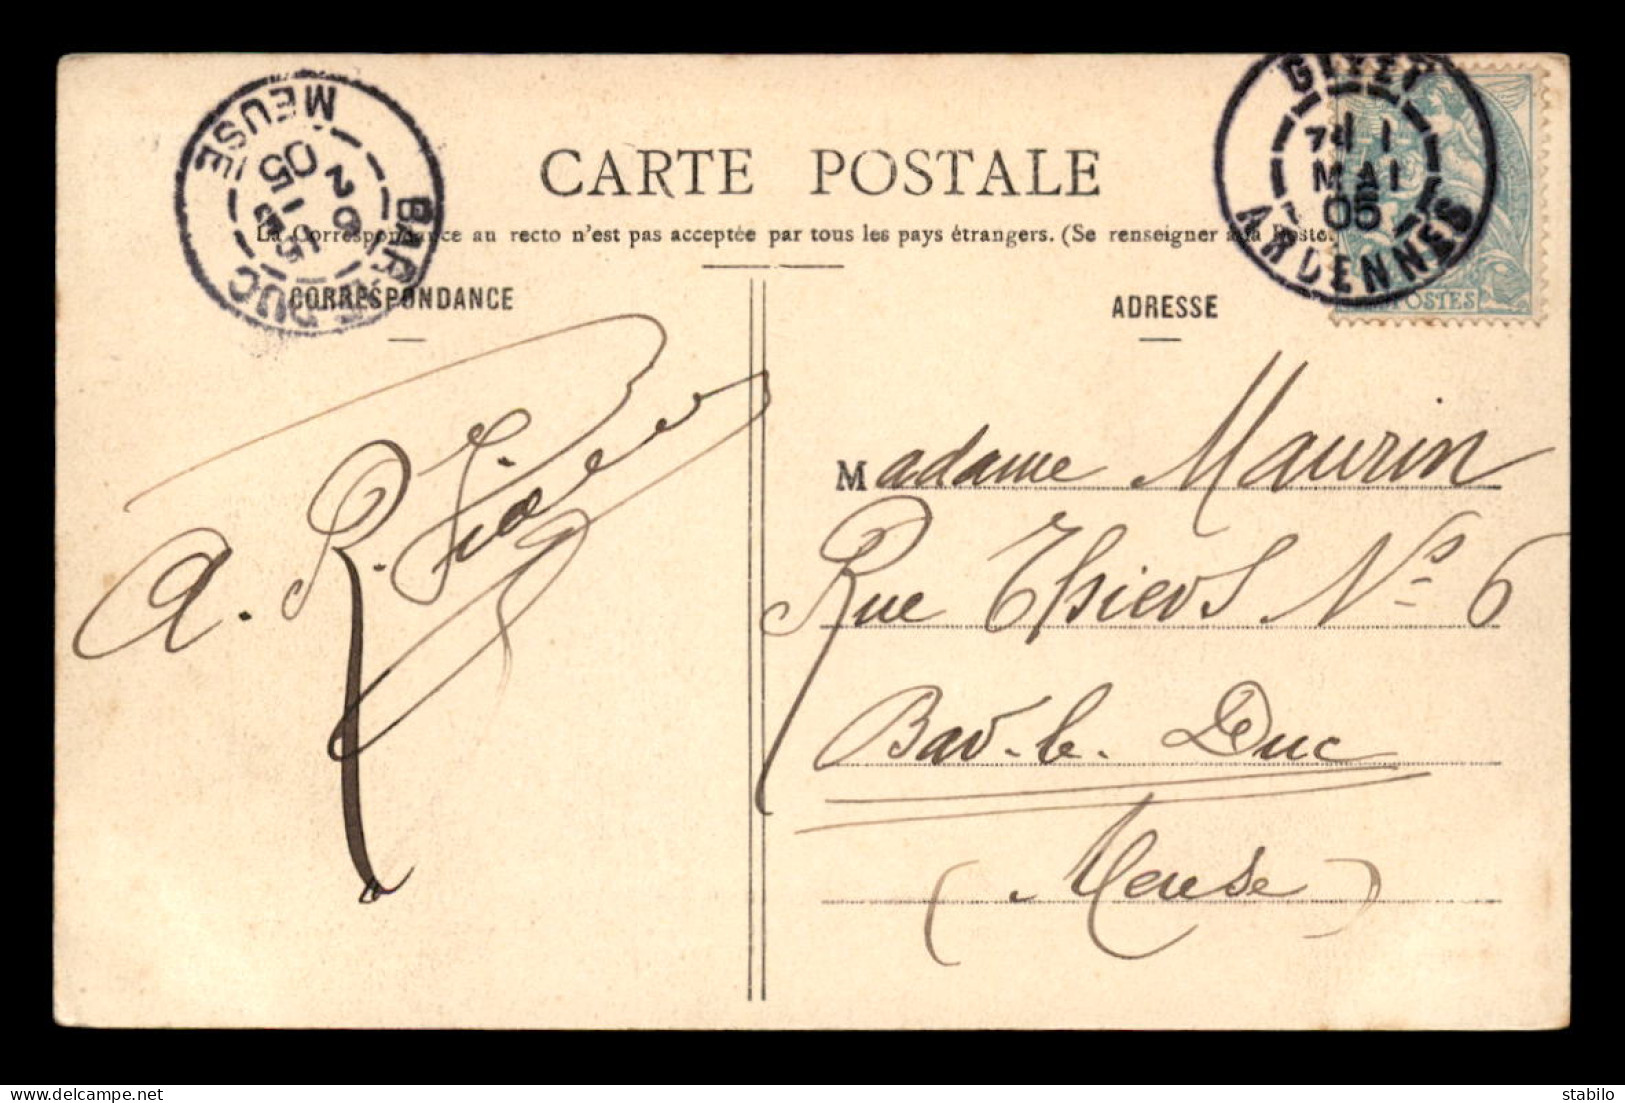 CARTE POSTALE
La Correspondance au recto n'est pas acceptée par tous les pays étrangers. (Se renseigner à la Poste.
CORRESPONDANCE
ADRESSE
MEUSE
BAR LE DUC
05
GIVET
1
MAI
05
ARDENNES
POSTES
a. R.
Madame Maurin
Rue Thiers Nº 6
Bar-le-Duc
(Meuse)
delcampe.net
stabilo